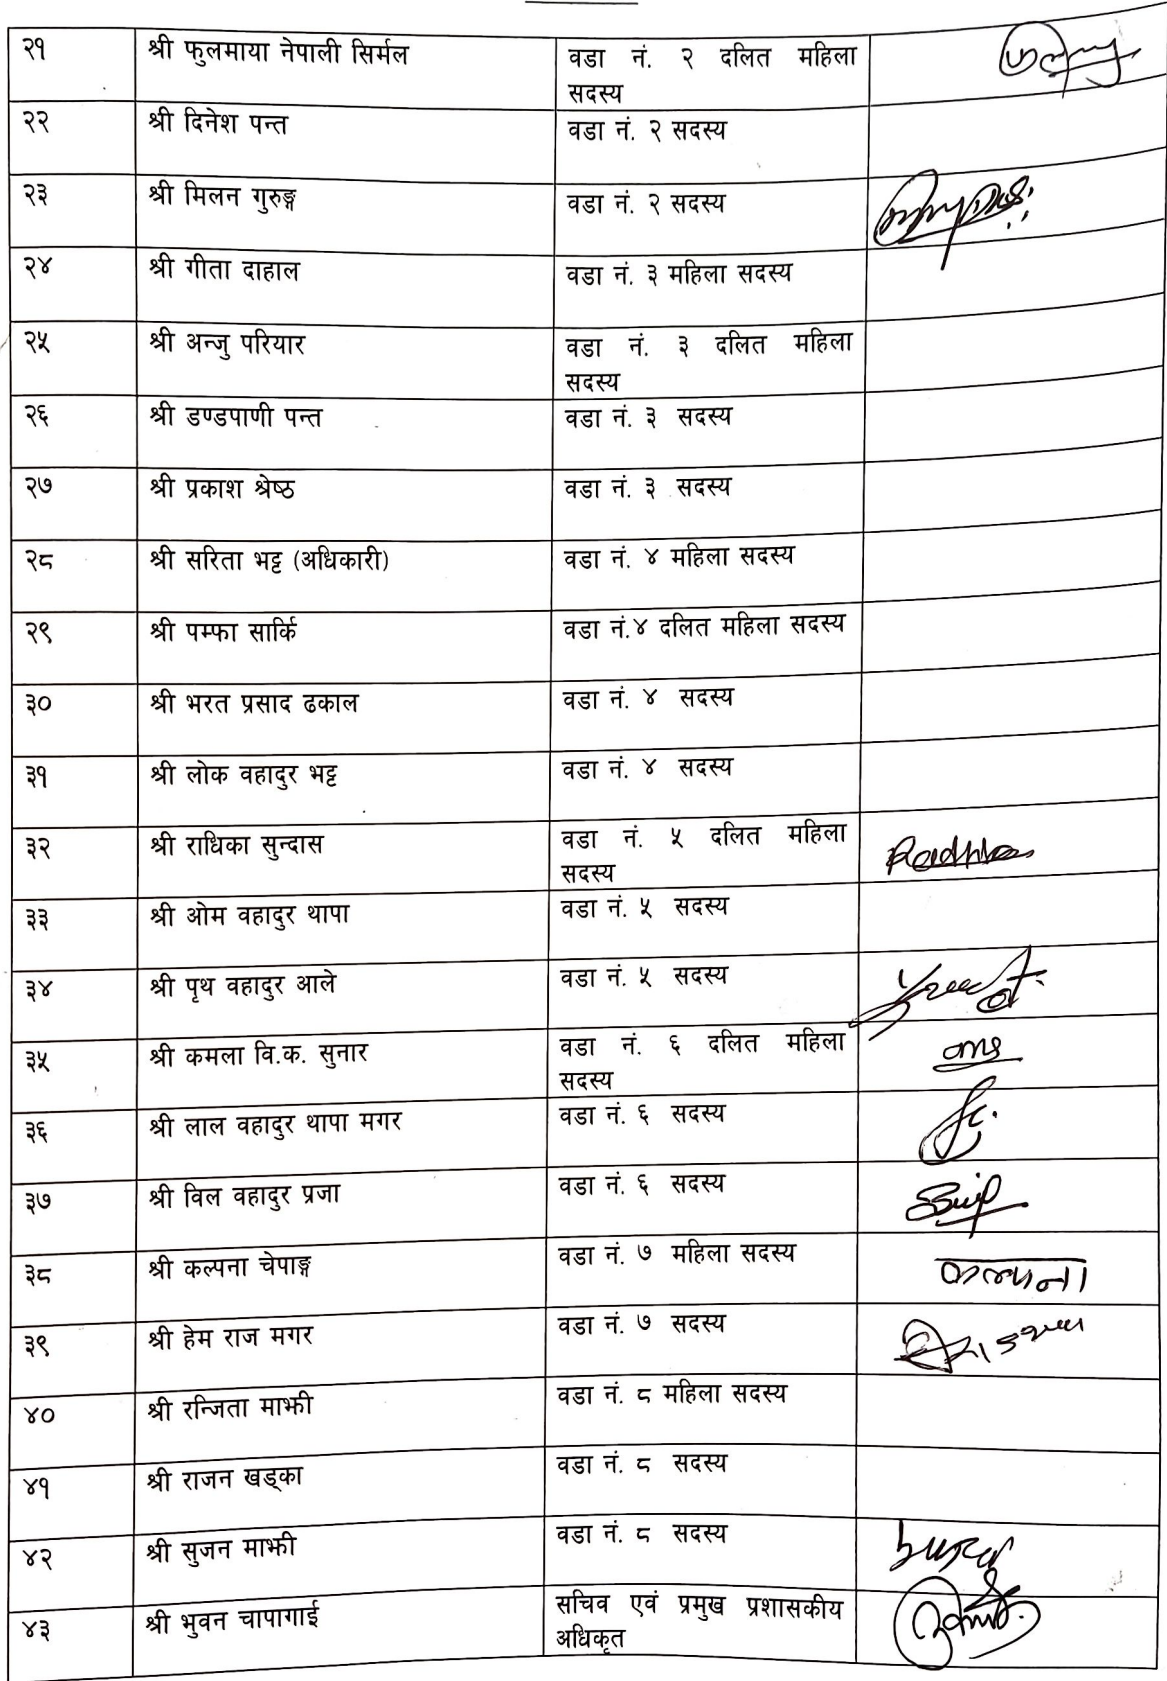 २१ श्री फुलमाया नेपाली सिर्मल वडा नं. २ दलित महिला
सदस्य
२२ श्री दिनेश पन्त वडा नं. २ सदस्य
२३ श्री मिलन गुरुङ्ग वडा नं. २ सदस्य
२४ श्री गीता दाहाल वडा नं. ३ महिला सदस्य
२५ श्री अन्जु परियार वडा नं. ३ दलित महिला
सदस्य
२६ श्री डण्डपाणी पन्त वडा नं. ३ सदस्य
२७ श्री प्रकाश श्रेष्ठ वडा नं. ३ सदस्य
२८ श्री सरिता भट्ट (अधिकारी) वडा नं. ४ महिला सदस्य
२९ श्री पम्फा सार्कि वडा नं.४ दलित महिला सदस्य
३० श्री भरत प्रसाद ढकाल वडा नं. ४ सदस्य
३१ श्री लोक वहादुर भट्ट वडा नं. ४ सदस्य
३२ श्री राधिका सुन्दास वडा नं. ५ दलित महिला Radhika
सदस्य
३३ श्री ओम वहादुर थापा वडा नं. ५ सदस्य
३४ श्री पृथ वहादुर आले वडा नं. ५ सदस्य
३५ श्री कमला वि.क. सुनार वडा नं. ६ दलित महिला
सदस्य
३६ श्री लाल वहादुर थापा मगर वडा नं. ६ सदस्य
३७ श्री विल वहादुर प्रजा वडा नं. ६ सदस्य
३८ श्री कल्पना चेपाङ्ग वडा नं. ७ महिला सदस्य कल्पना
३९ श्री हेम राज मगर वडा नं. ७ सदस्य
४० श्री रन्जिता माझी वडा नं. ८ महिला सदस्य
४१ श्री राजन खड्का वडा नं. ८ सदस्य
४२ श्री सुजन माझी वडा नं. ८ सदस्य
४३ श्री भुवन चापागाई सचिव एवं प्रमुख प्रशासकीय
अधिकृत